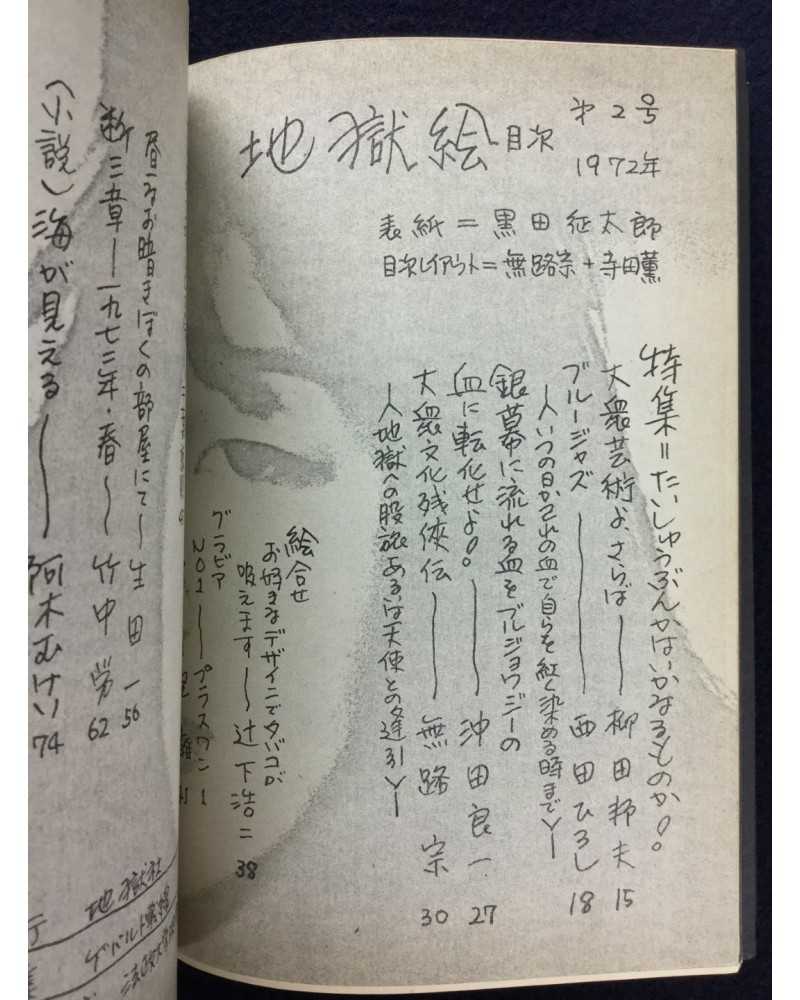 地獄絵 目次
第2号
1972年
表紙=黒田征太郎
目次レイアウト=無路宗+寺田薫
特集=たいしゅうぶんかはいかなるものか!。
大衆芸術よ、さらば――柳田邦夫 15
ブルージャズ――西田ひろし 18
〈いつの日かこれの血で自らを紅く染める時まで〉
銀幕に流れる血をブルジョウジーの
血に転化せよ!。――沖田良一 27
大衆文化残侠伝――無路 宗 30
〈地獄への股旅あるは天使との逢引〉
絵合せ
お好きなデザインでタバコが
吸えます――辻下浩二 38
グラビア
NO1――プラスワン 1
昼なお暗きぼくの部屋にて――生田一 56
断三章――一九七二年・春――竹中労 62
(小説)海が見える――阿木むけい 74
地獄社
ゲバルト戦